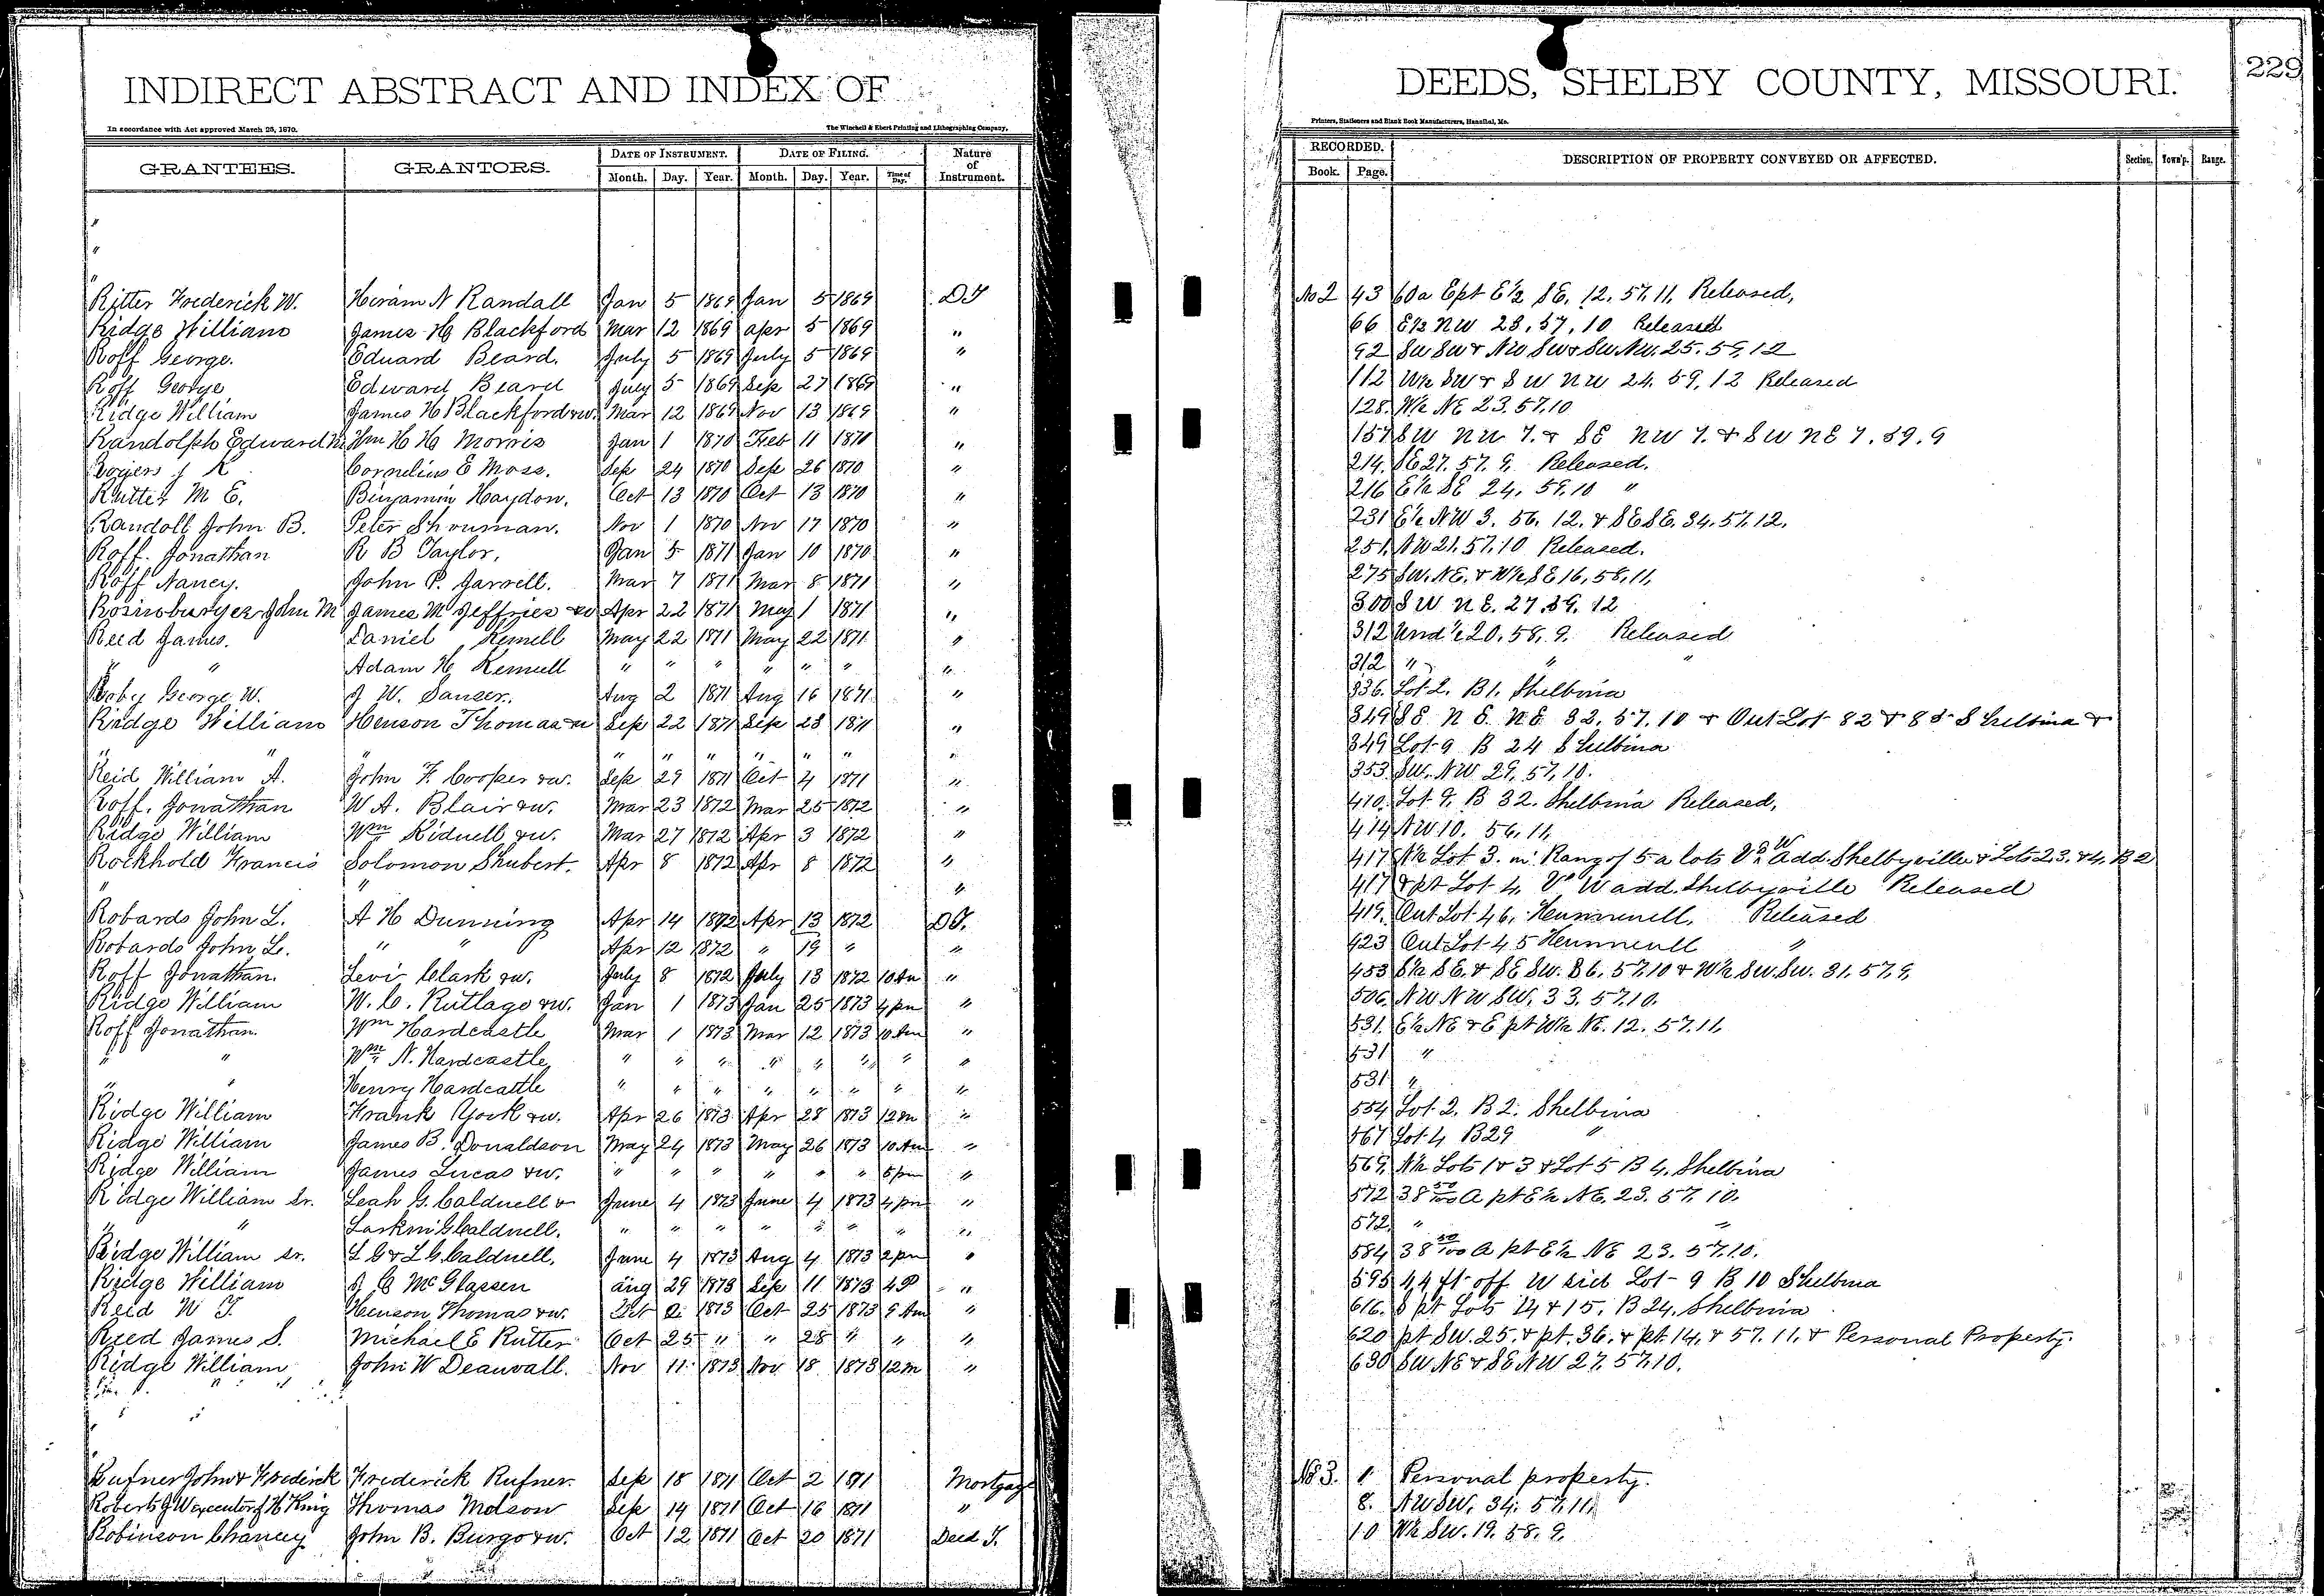 INDIRECT ABSTRACT AND INDEX OF DEEDS, SHELBY COUNTY, MISSOURI. 229
In accordance with Act approved March 25, 1870. The Winchell & Ebert Printing and Lithographing Company, Printers, Stationers and Blank Book Manufacturers, Hannibal, Mo.
GRANTEES. GRANTORS. DATE OF INSTRUMENT. DATE OF FILING. Nature of Instrument. RECORDED. DESCRIPTION OF PROPERTY CONVEYED OR AFFECTED. Section. Town'p. Range.
Month. Day. Year. Month. Day. Year. Time of Day. Book. Page.
"
"
"
Ritter Frederick W. Hiram N Randall Jan 5 1869 Jan 5 1869 DT No 2 43 60a Ept E½ SE. 12. 57. 11. Released,
Ridge William James H Blackford Mar 12 1869 apr 5 1869 " 66 E½ NW 23. 57. 10 Released
Roff George. Eduard Beard. July 5 1869 July 5 1869 " 92 SW SW & NW SW & SW NW. 25. 59. 12
Roff George Edward Beard July 5 1869 Sep 27 1869 " 112 W½ SW & SW NW 24. 59. 12 Released
Ridge William James H Blackford &w. Mar 12 1869 Nov 13 1869 " 128. W½ NE 23. 57. 10
Randolph Edward Wm H H Morris Jan 1 1870 Feb 11 1870 " 157 SW NW 7. & SE NW 7. & SW NE 7. 59. 9
Rogers J K Cornelius E Moss. Sep 24 1870 Sep 26 1870 " 214. SE 27. 57. 9. Released.
Rutter M E. Binyamin Haydon. Oct 13 1870 Oct 13 1870 " 216 E½ SE 24. 59. 10 "
Randoll John B. Peter Shouman. Nov 1 1870 Nov 17 1870 " 231 E½ NW 3. 56. 12. & SE SE. 34. 57. 12.
Roff. Jonathan R B Taylor. Jan 5 1871 Jan 10 1870 " 251. NW 21. 57. 10 Released.
Roff Nancy. John P. Jarrell. Mar 7 1871 Mar 8 1871 " 275 SW. NE. & W½ SE 16. 58. 11.
John M James M Jeffries &w Apr 22 1871 May 1 1871 " 300 SW NE. 27. 59. 12
Reed James. Daniel Kemell May 22 1871 May 22 1871 " 312 Und ½ 20. 58. 9. Released
" " Adam H Kemell " " " " " " " 312 " " "
Roby George W. J W. Sanser. Aug 2 1871 Aug 16 1871 " 336. Lot 2. B 1. Shelbina
Ridge William Henson Thomas &w Sep 22 1871 Sep 23 1871 " 349 SE NE NE 32. 57. 10 & Out Lot 82 & 83 Shelbina &
" " " " " " " " " " 349 Lot 9 B 24 Shelbina
Reid William A. John F. Cooper &w. Sep 29 1871 Oct 4 1871 " 353. SW. NW 29. 57. 10.
Roff. Jonathan W A. Blair &w. Mar 23 1872 Mar 25 1872 " 410. Lot 9. B 32. Shelbina Released,
Ridge William Wm Kidwell &w. Mar 27 1872 Apr 3 1872 " 414 NW 10. 56. 11.
Rockhold Francis Solomon Shubert. Apr 8 1872 Apr 8 1872 " 417 N½ Lot 3. in Rang of 5 a lots add. Shelbyville & Lots 2 3. & 4. B 2
" " " 417 & pt Lot 4. W add. Shelbyville Released
Robards John L. A H Dunning Apr 14 1872 Apr 13 1872 DT. 419. Out Lot 46. Hunnewell, Released
Robards John L. " " Apr 12 1872 " 19 " " 423 Out Lot 45 Hunnewell "
Roff Jonathan. Levi Clark &w. July 8 1872 July 13 1872 10 Am " 453 S½ SE. & SE SW. 36. 57. 10 & W½ SW. SW. 31. 57. 9.
Ridge William W. C. Rutlage &w. Jan 1 1873 Jan 25 1873 4 pm " 506. NW NW SW. 33. 57. 10.
Roff Jonathan. Wm Hardcastle Mar 1 1873 Mar 12 1873 10 Am " 531. E½ NE & E pt W½ NE. 12. 57. 11.
" " Wm N. Hardcastle " " " " " " " " 531 "
" " Henry Hardcastle " " " " " " " " 531 "
Ridge William Frank York &w. Apr 26 1873 Apr 28 1873 12 m " 554 Lot 2. B 2. Shelbina
Ridge William James B. Donaldson May 24 1873 May 26 1873 10 Am " 567 Lot 4 B 29 "
Ridge William James Lucas &w. " " " " " " 5 pm " 569. N½ Lots 1 & 3 & Lot 5 B 4. Shelbina
Ridge William Sr. Leah G. Caldwell & June 4 1873 June 4 1873 4 pm " 572 38 50/100 a pt E½ NE. 23. 57. 10.
" " Larkin G Caldwell. " " " " " " " " 572. " "
Ridge William sr. L G & L G Caldwell. June 4 1873 Aug 4 1873 2 pm " 584 38 50/100 a pt E½ NE 23. 57. 10.
Ridge William McGlassen aug 29 1873 Sep 11 1873 4 P " 595 44 ft off W side Lot 9 B 10 Shelbina
Reid W T. Henson Thomas &w. Oct 2 1873 Oct 25 1873 9 Am " 616. S pt Lots 14 & 15. B 24. Shelbina
Reed James S. Michael E Rutter Oct 25 " " 28 " " " 620 pt SW. 25. & pt. 36. & pt. 14. & 57. 11. & Personal Property.
Ridge William John W Deauvall. Nov 11 1873 Nov 18 1873 12 m " 630 SW NE & SE NW 27. 57. 10.
Rufner John & Frederick Frederick Rufner. Sep 18 1871 Oct 2 1871 Mortgage No 3. 1 Personal property.
Roberts J W executor of H King Thomas Molson Sep 14 1871 Oct 16 1871 " 8. NW SW. 34. 57. 11.
Robinson Chancey John B. Burgo &w. Oct 12 1871 Oct 20 1871 Deed T. 10 W½ SW. 19. 58. 9.